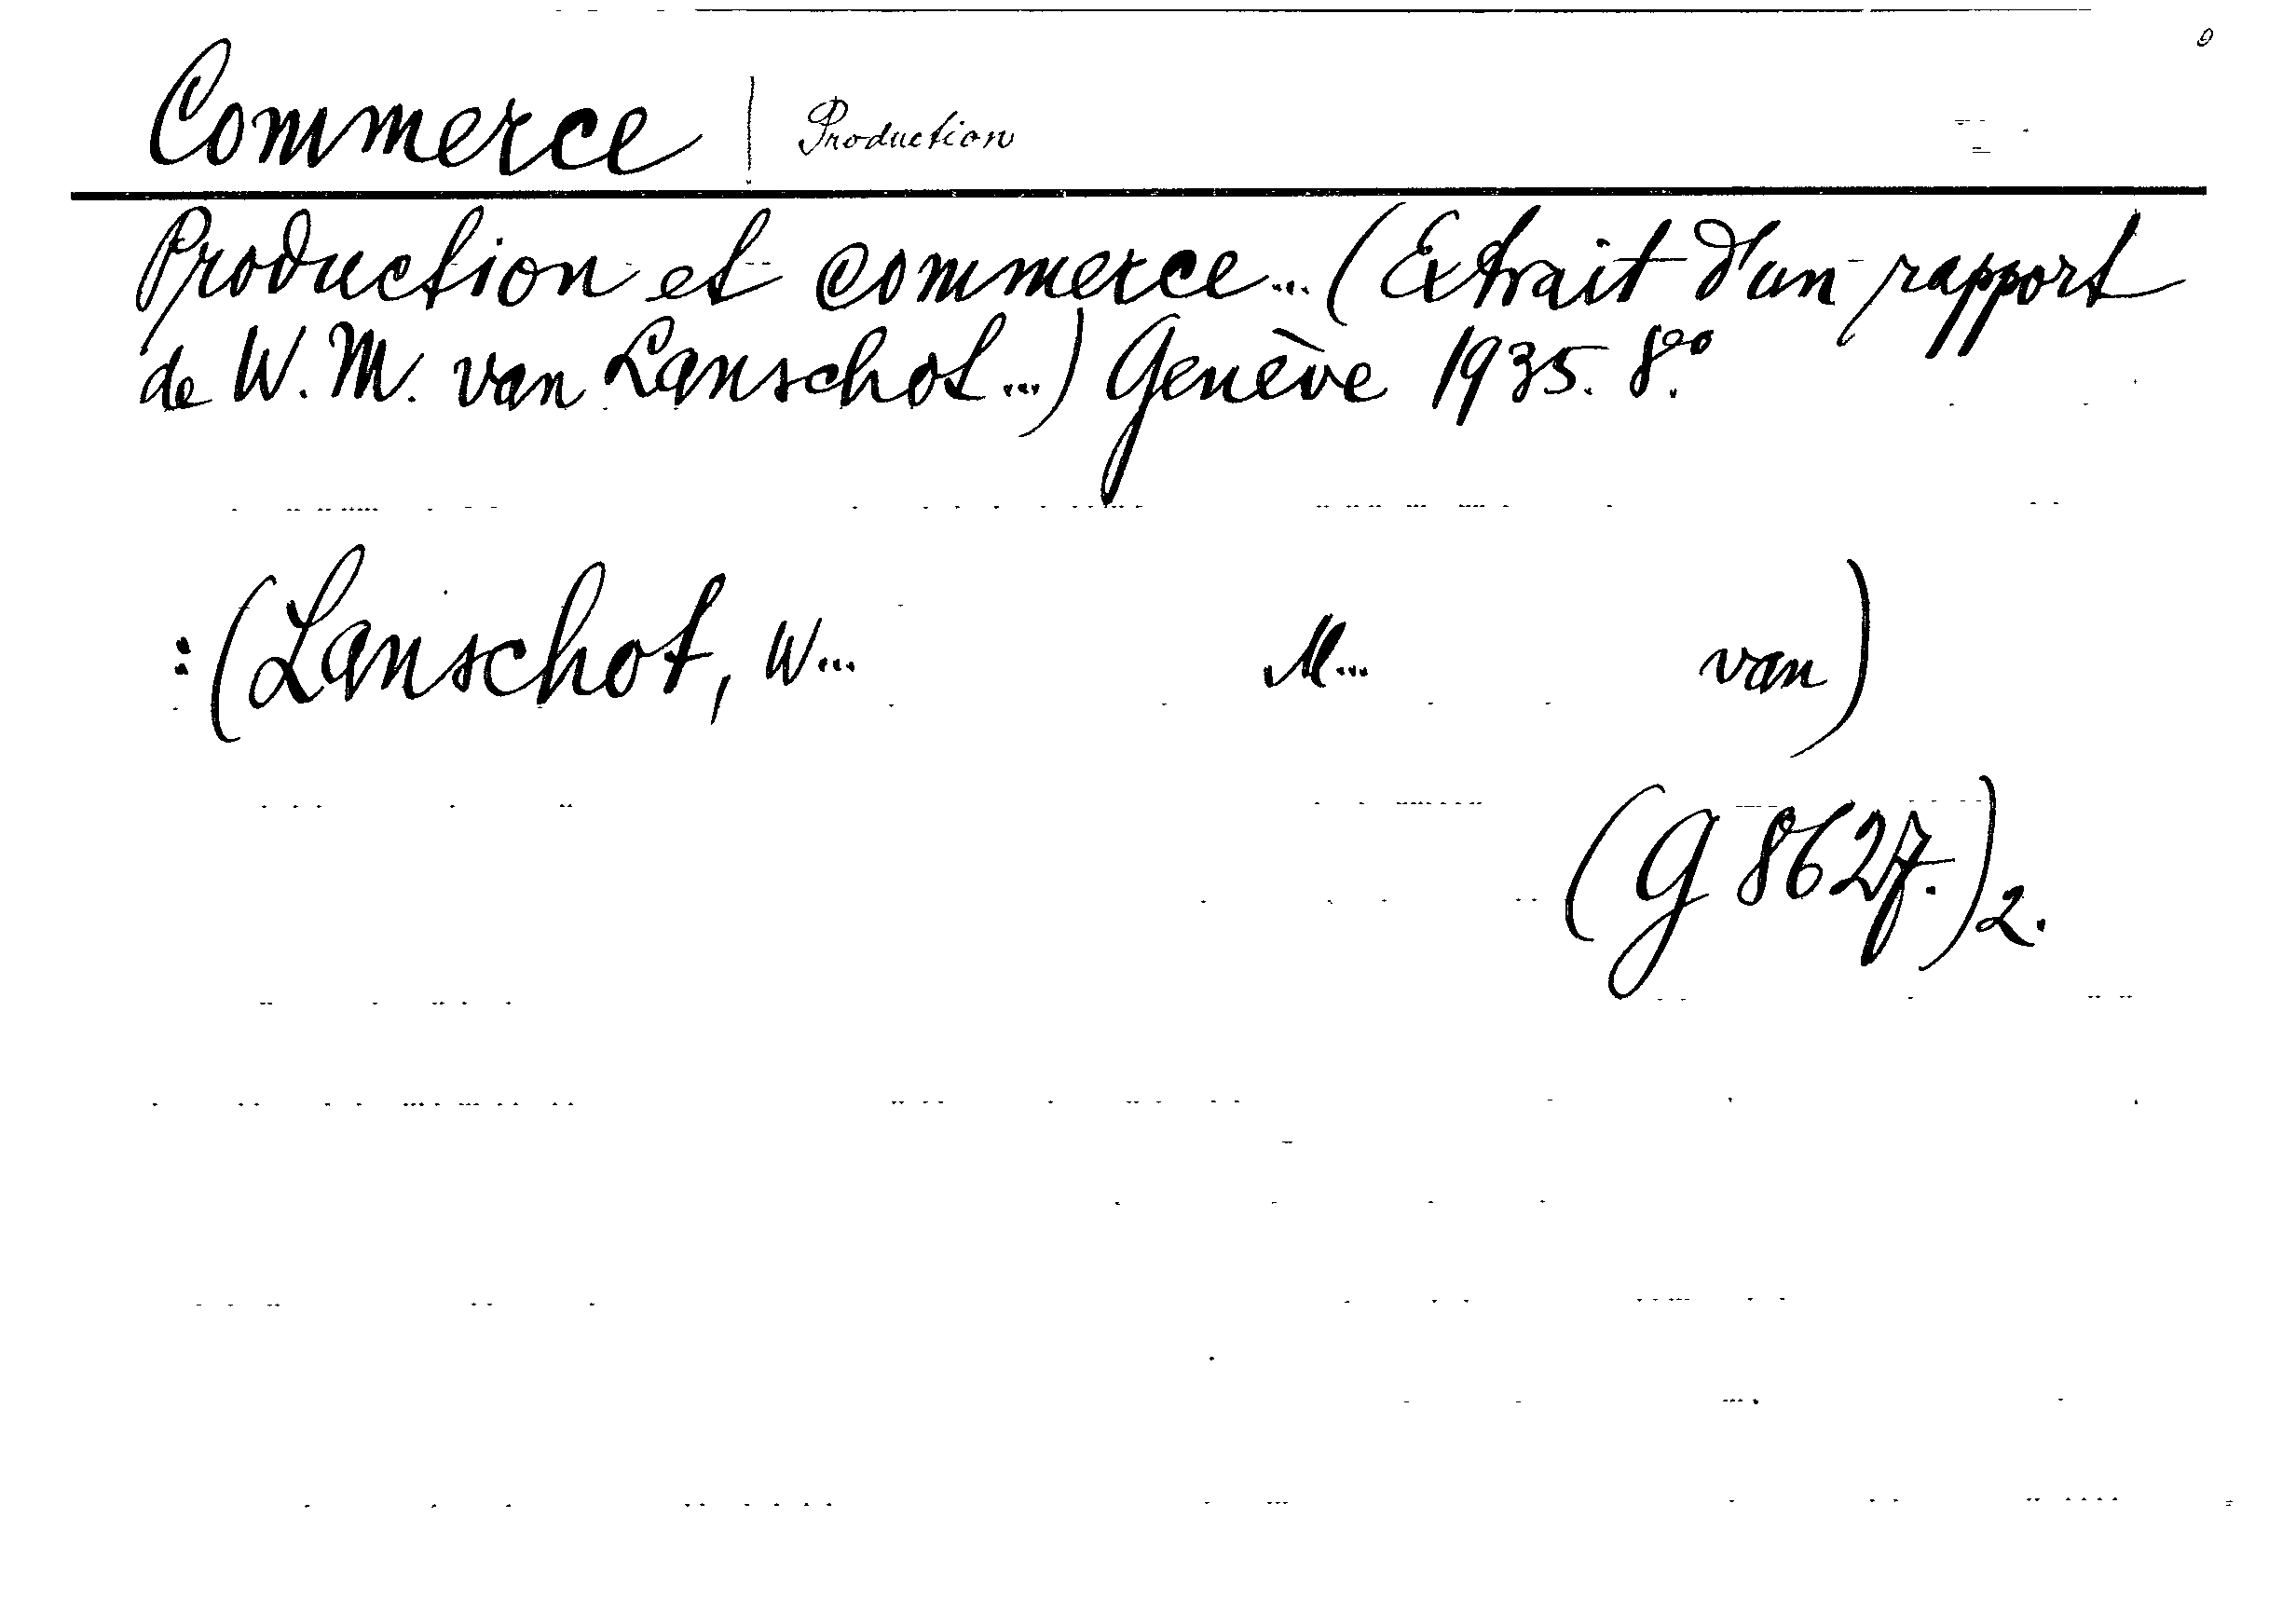 Commerce | Production
Production et commerce... (Extrait d'un rapport
de W. M. van Lanschot...) Genève 1935. 8.º
: (Lanschot, W... M... van)
(G 8627.) 2.